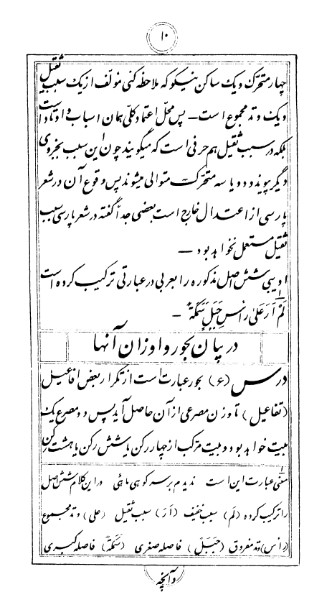 ۱۰
چهار متحرک و یک ساکن نیکو که ملاحظه کنی مؤلف از یک سبب ثقیل
و یک وتد مجموع است – پس محل اعتماد کلی همان اسباب و اوتاد است
بلکه در سبب ثقیل هم حرفی است که میگویند چون این سبب بجزوی
دیگر پیوندد و دو یا سه متحرک متوالی میشوند پس وقوع آن در شعر
پارسی از اعتدال خارج است بعضی جدا گفته در شعر پارسی سبب
ثقیل مستعمل نخواهد بود –
ادیبی شش اصل مذکوره را بعربی در عبارتی ترکیب کرده است
لَمْ اَرَ عَلیٰ رَاْسِ جَبَلٍ سَمَکَةً –
در بیان بحور و اوزان آنها
درس (۶) بحور عبارت است از تکرار بعض افاعیل
(تفاعیل) تا وزن مصرعی از آن حاصل آید پس دو مصرع یک
بیت خواهد بود و بیت مرکب از چهار رکن یا شش رکن یا هشت رکن
۱ معنی عبارت این است ندیدم بر سر کوهی ماهئی و در این کلام شش اصل
را ترکیب کرده (لم) سبب خفیف (اَرَ) سبب ثقیل (علی) وتد مجموع
(راس) وتد مفروق (جَبَلٍ) فاصله صغری (سَمَکَةً) فاصله کبری
و آنچه